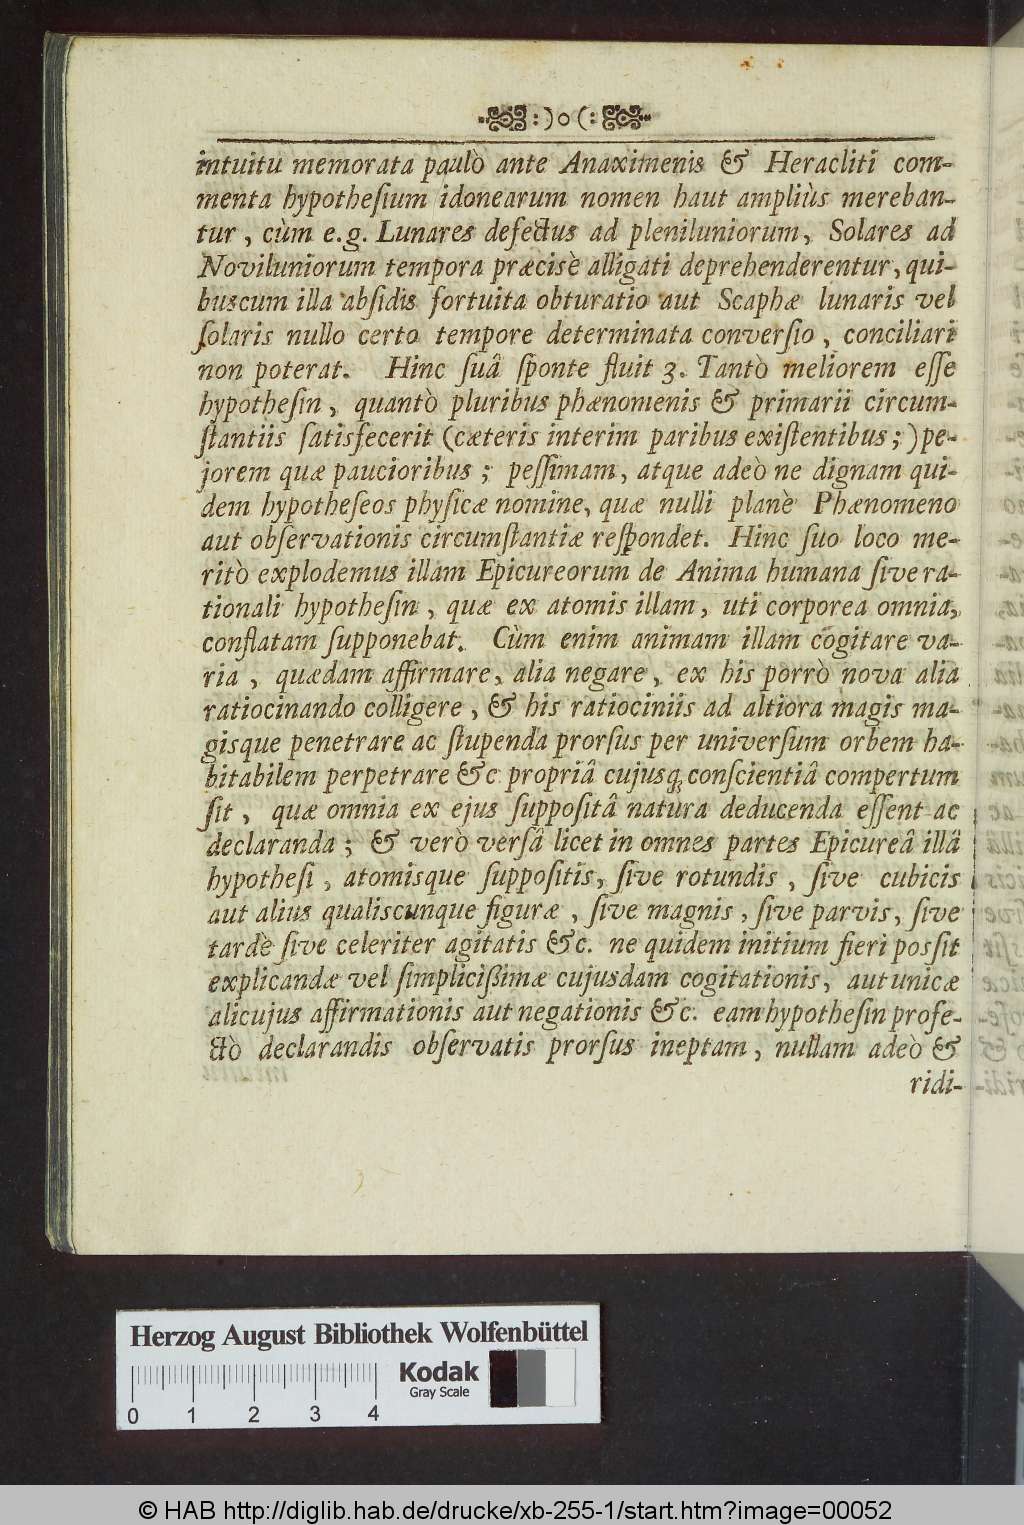 :)o(:
intuitu memorata paulò ante Anaximenis & Heracliti com-
menta hypotheſium idonearum nomen haut ampliùs mereban-
tur, cùm e.g. Lunares defectus ad pleniluniorum, Solares ad
Noviluniorum tempora præcisè alligati deprehenderentur, qui-
buscum illa abſidis fortuita obturatio aut Scaphæ lunaris vel
ſolaris nullo certo tempore determinata converſio, conciliari
non poterat. Hinc ſuâ ſponte fluit 3. Tantò meliorem eſſe
hypotheſin, quantò pluribus phænomenis & primarii circum-
ſtantiis ſatisfecerit (cæteris interim paribus exiſtentibus;) pe-
jorem quæ paucioribus; peſſimam, atque adeò ne dignam qui-
dem hypotheſeos phyſicæ nomine, quæ nulli planè Phænomeno
aut obſervationis circumſtantiæ reſpondet. Hinc ſuo loco me-
ritò explodemus illam Epicureorum de Anima humana ſive ra-
tionali hypotheſin, quæ ex atomis illam, uti corporea omnia,
conflatam ſupponebat. Cùm enim animam illam cogitare va-
ria, quædam affirmare, alia negare, ex his porrò nova alia
ratiocinando colligere, & his ratiociniis ad altiora magis ma-
gisque penetrare ac ſtupenda prorſus per univerſum orbem ha-
bitabilem perpetrare &c propriâ cujusq; conſcientiâ compertum
ſit, quæ omnia ex ejus ſuppoſitâ natura deducenda eſſent ac
declaranda; & verò verſâ licet in omnes partes Epicureâ illâ
hypotheſi, atomisque ſuppoſitis, ſive rotundis, ſive cubicis
aut alius qualiscunque figuræ, ſive magnis, ſive parvis, ſive
tardè ſive celeriter agitatis &c. ne quidem initium fieri poſſit
explicandæ vel ſimpliciſſimæ cujusdam cogitationis, aut unicæ
alicujus affirmationis aut negationis &c. eam hypotheſin profe-
ctò declarandis obſervatis prorſus ineptam, nullam adeò &
ridi-
Herzog August Bibliothek Wolfenbüttel
Kodak
Gray Scale
0 1 2 3 4
© HAB http://diglib.hab.de/drucke/xb-255-1/start.htm?image=00052